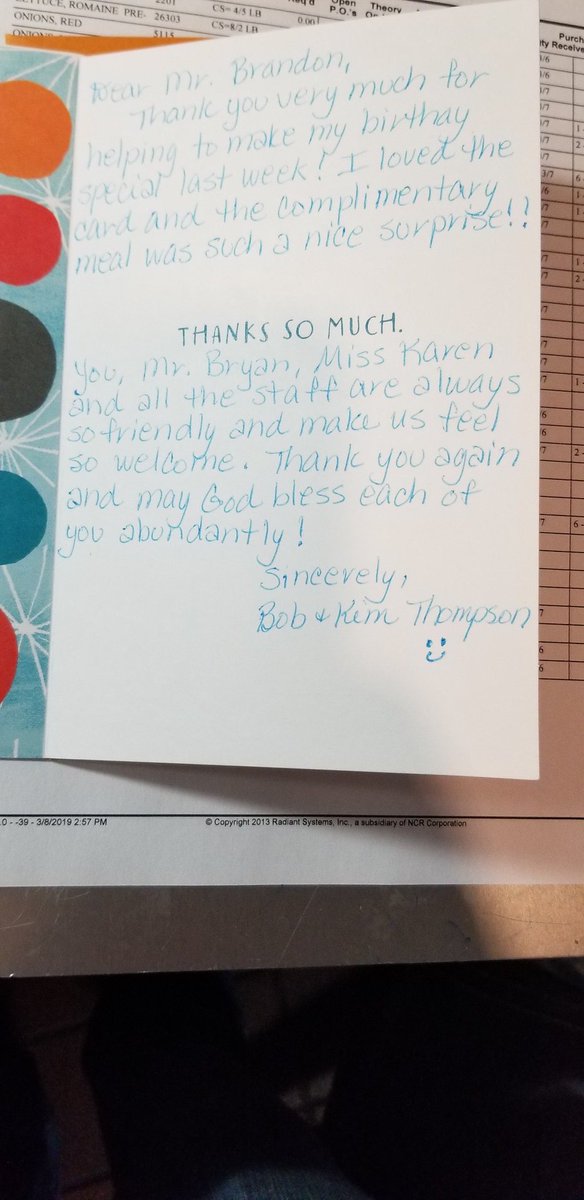 LETTUCE, ROMAINE PRE- 26303
CS= 4/5 LB
ONIONS, RED
5115
CS=8/2 LB
0.00
Open
P.O.'s
Theory
Purch
Receive
Dear Mr. Brandon,
Thank you very much for
helping to make my birthay
special last week! I loved the
card and the complimentary
meal was such a nice surprise!!
THANKS SO MUCH.
You, Mr. Bryan, Miss Karen
and all the staff are always
so friendly and make us feel
so welcome. Thank you again
and may God bless each of
you abundantly!
Sincerely,
Bob & Kim Thompson
.0 - -39 - 3/8/2019 2:57 PM
© Copyright 2013 Radiant Systems, Inc., a subsidiary of NCR Corporation